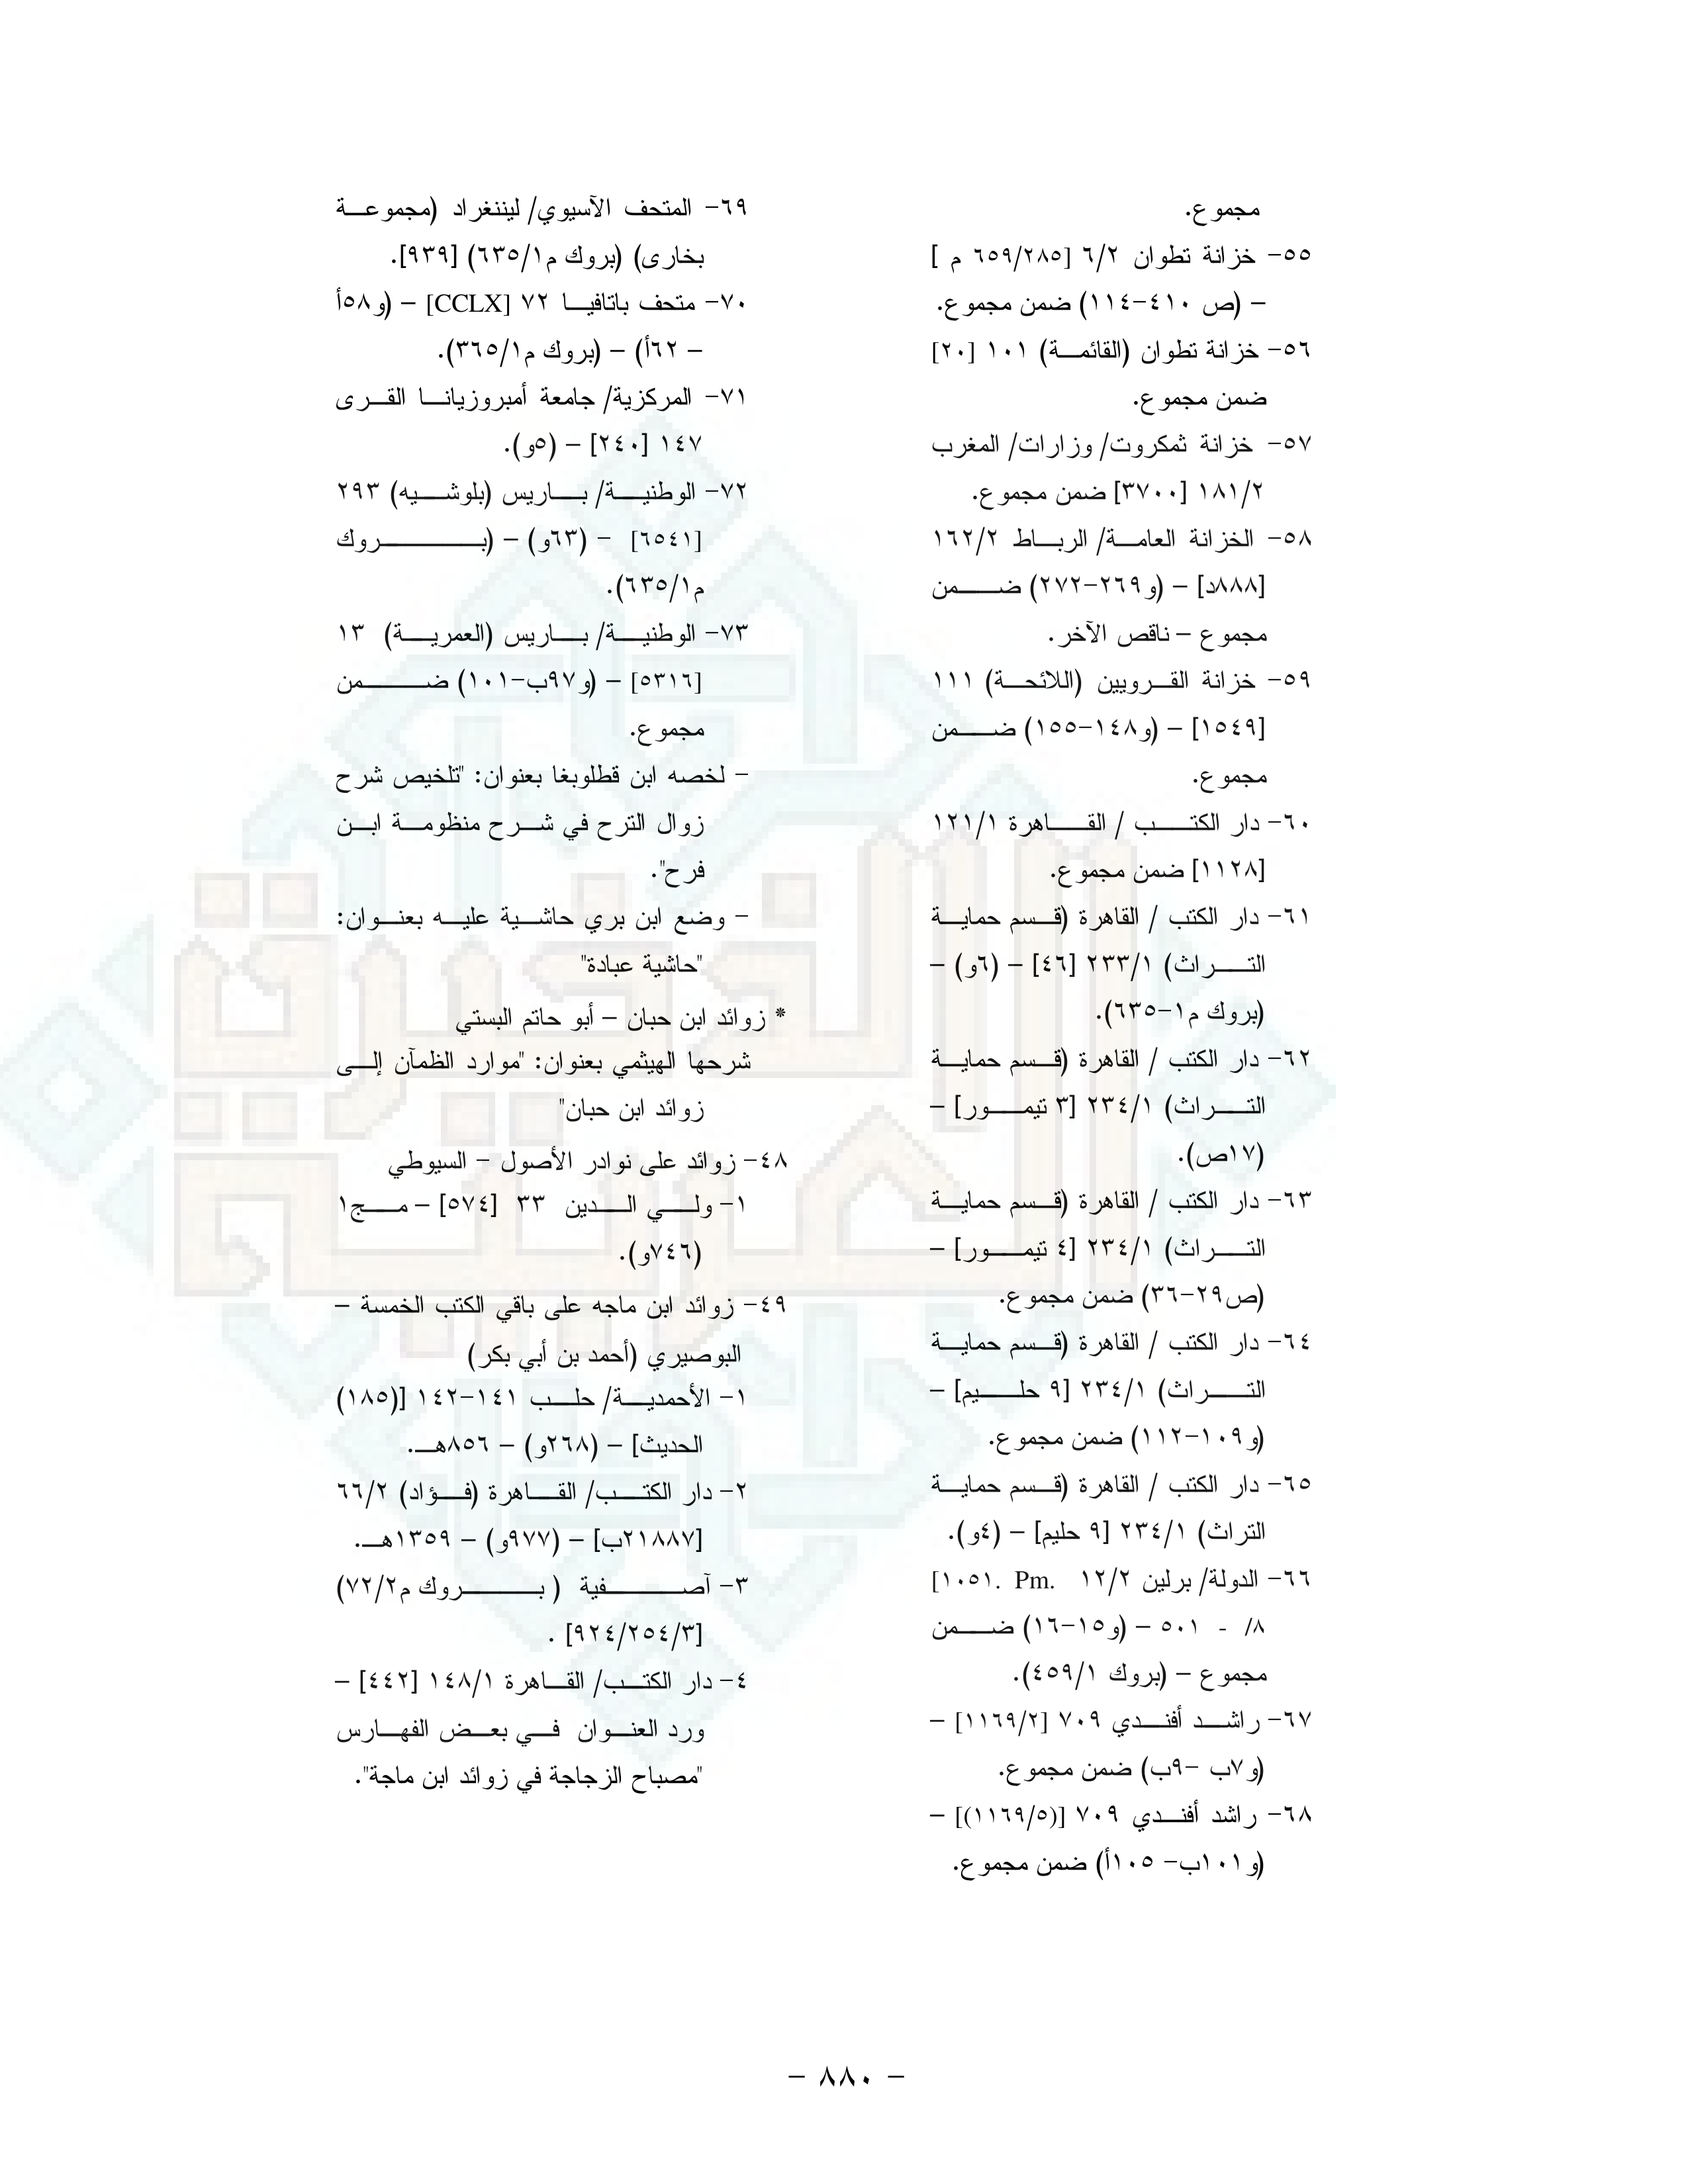 مجموع.
٥٥- خزانة تطوان ٦/٢ [٦٥٩/٢٨٥ م ]
– (ص ٤١٠-١١٤) ضمن مجموع.
٥٦- خزانة تطوان (القائمة) ١٠١ [٢٠]
ضمن مجموع.
٥٧- خزانة ثمكروت/ وزارات/ المغرب
١٨١/٢ [٣٧٠٠] ضمن مجموع.
٥٨- الخزانة العامة/ الرباط ١٦٢/٢
[٨٨٨د] – (و٢٦٩-٢٧٢) ضمن
مجموع – ناقص الآخر.
٥٩- خزانة القرويين (اللائحة) ١١١
[١٥٤٩] – (و١٤٨-١٥٥) ضمن
مجموع.
٦٠- دار الكتب / القاهرة ١٢١/١
[١١٢٨] ضمن مجموع.
٦١- دار الكتب / القاهرة (قسم حماية
التراث) ٢٣٣/١ [٤٦] – (٦و) –
(بروك م١-٦٣٥).
٦٢- دار الكتب / القاهرة (قسم حماية
التراث) ٢٣٤/١ [٣ تيمور] –
(١٧ص).
٦٣- دار الكتب / القاهرة (قسم حماية
التراث) ٢٣٤/١ [٤ تيمور] –
(ص٢٩-٣٦) ضمن مجموع.
٦٤- دار الكتب / القاهرة (قسم حماية
التراث) ٢٣٤/١ [٩ حليم] –
(و١٠٩-١١٢) ضمن مجموع.
٦٥- دار الكتب / القاهرة (قسم حماية
التراث) ٢٣٤/١ [٩ حليم] – (٤و).
٦٦- الدولة/ برلين ١٢/٢ .Pm .١٠٥١]
٨/ - ٥٠١ – (و١٥-١٦) ضمن
مجموع – (بروك ٤٥٩/١).
٦٧- راشد أفندي ٧٠٩ [١١٦٩/٢] –
(و٧ب -٩ب) ضمن مجموع.
٦٨- راشد أفندي ٧٠٩ [(١١٦٩/٥)] –
(و١٠١ب- ١٠٥أ) ضمن مجموع.
٦٩- المتحف الآسيوي/ ليننغراد (مجموعة
بخارى) (بروك م٦٣٥/١) [٩٣٩].
٧٠- متحف باتافيا ٧٢ [CCLX] – (و٥٨أ
– ٦٢أ) – (بروك م٣٦٥/١).
٧١- المركزية/ جامعة أمبروزيانا القرى
١٤٧ [٢٤٠] – (٥و).
٧٢- الوطنية/ باريس (بلوشيه) ٢٩٣
[٦٥٤١] - (٦٣و) – (بروك
م٦٣٥/١).
٧٣- الوطنية/ باريس (العمرية) ١٣
[٥٣١٦] – (و٩٧ب-١٠١) ضمن
مجموع.
- لخصه ابن قطلوبغا بعنوان: "تلخيص شرح
زوال الترح في شرح منظومة ابن
فرح".
- وضع ابن بري حاشية عليه بعنوان:
"حاشية عبادة"
* زوائد ابن حبان – أبو حاتم البستي
شرحها الهيثمي بعنوان: "موارد الظمآن إلى
زوائد ابن حبان"
٤٨- زوائد على نوادر الأصول – السيوطي
١- ولي الدين ٣٣ [٥٧٤] – مج١
(٧٤٦و).
٤٩- زوائد ابن ماجه على باقي الكتب الخمسة –
البوصيري (أحمد بن أبي بكر)
١- الأحمدية/ حلب ١٤١-١٤٢ [(١٨٥)
الحديث] – (٢٦٨و) – ٨٥٦هـ.
٢- دار الكتب/ القاهرة (فؤاد) ٦٦/٢
[٢١٨٨٧ب] – (٩٧٧و) – ١٣٥٩هـ.
٣- آصفية ( بروك م٧٢/٢)
[٩٢٤/٢٥٤/٣] .
٤- دار الكتب/ القاهرة ١٤٨/١ [٤٤٢] –
ورد العنوان في بعض الفهارس
"مصباح الزجاجة في زوائد ابن ماجة".
- ٨٨٠ -